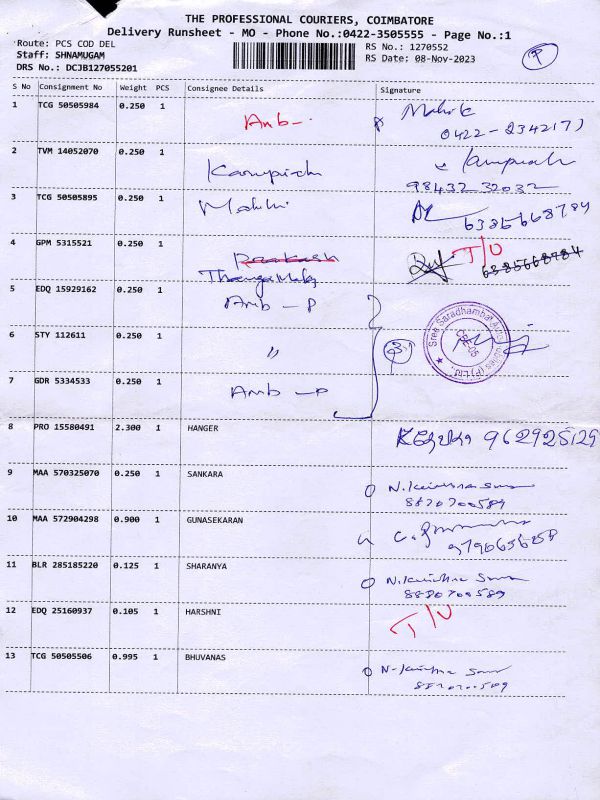 THE PROFESSIONAL COURIERS, COIMBATORE
Delivery Runsheet - MO - Phone No.:0422-3505555 - Page No.:1
Route: PCS COD DEL
Staff: SHNAMUGAM
DRS No.: DCJB127055201
RS No.: 1270552
RS Date: 08-Nov-2023
S No Consignment No Weight PCS Consignee Details Signature
1 TCG 50505984 0.250 1 Amb-
0422-2342173
2 TVM 14052070 0.250 1
98432 32032
3 TCG 50505895 0.250 1
6385668784
4 GPM 5315521 0.250 1 T/U
6385668784
5 EDQ 15929162 0.250 1 Amb - P
6 STY 112611 0.250 1 "
3
7 GDR 5334533 0.250 1 Amb - P
8 PRO 15580491 2.300 1 HANGER 962925129
9 MAA 570325070 0.250 1 SANKARA
8870700589
10 MAA 572904298 0.900 1 GUNASEKARAN
11 BLR 285185220 0.125 1 SHARANYA
8870700589
12 EDQ 25160937 0.105 1 HARSHNI T/U
13 TCG 50505506 0.995 1 BHUVANAS